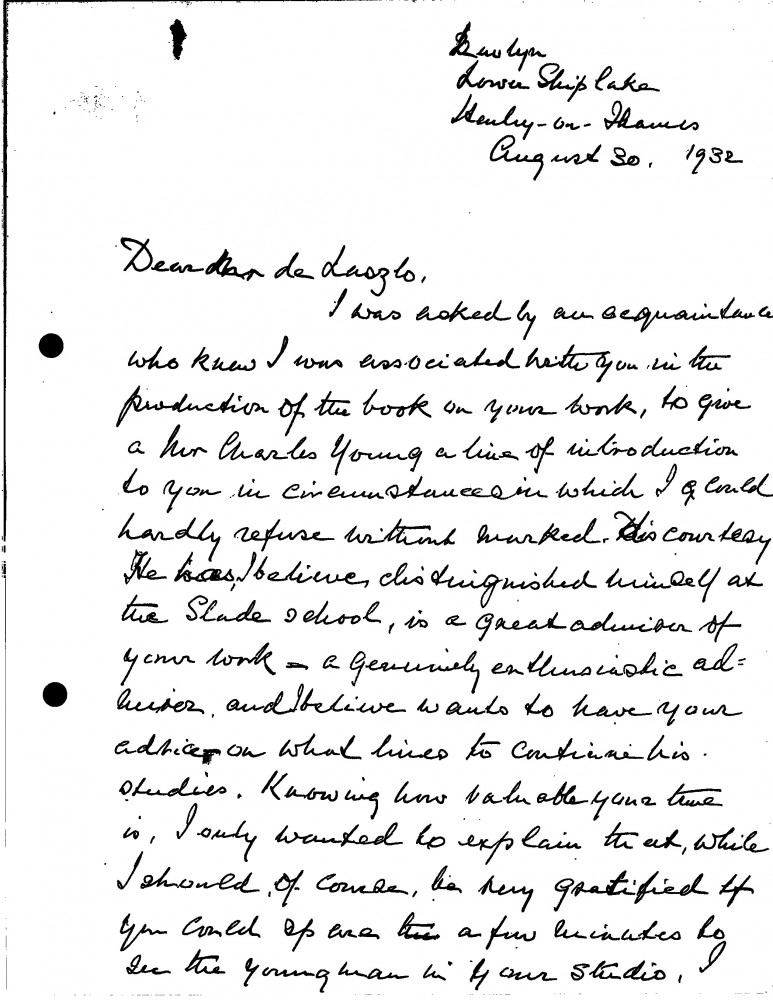 Lower Shiplake
Henley-on-Thames
August 30. 1932
Dear Mr de Laszlo,
I was asked by an acquaintance
who knew I was associated with you in the
production of the book on your work, to give
a Mr Charles Young a line of introduction
to you in circumstances in which I could
hardly refuse without marked discourtesy
He has, I believe, distinguished himself at
the Slade school, is a great admirer of
your work – a genuinely enthusiastic ad=
mirer, and I believe wants to have your
advice on what lines to continue his
studies. Knowing how valuable your time
is, I only wanted to explain that, while
I should, of course, be very gratified if
you could spare a few minutes to
see the young man in your studio, I